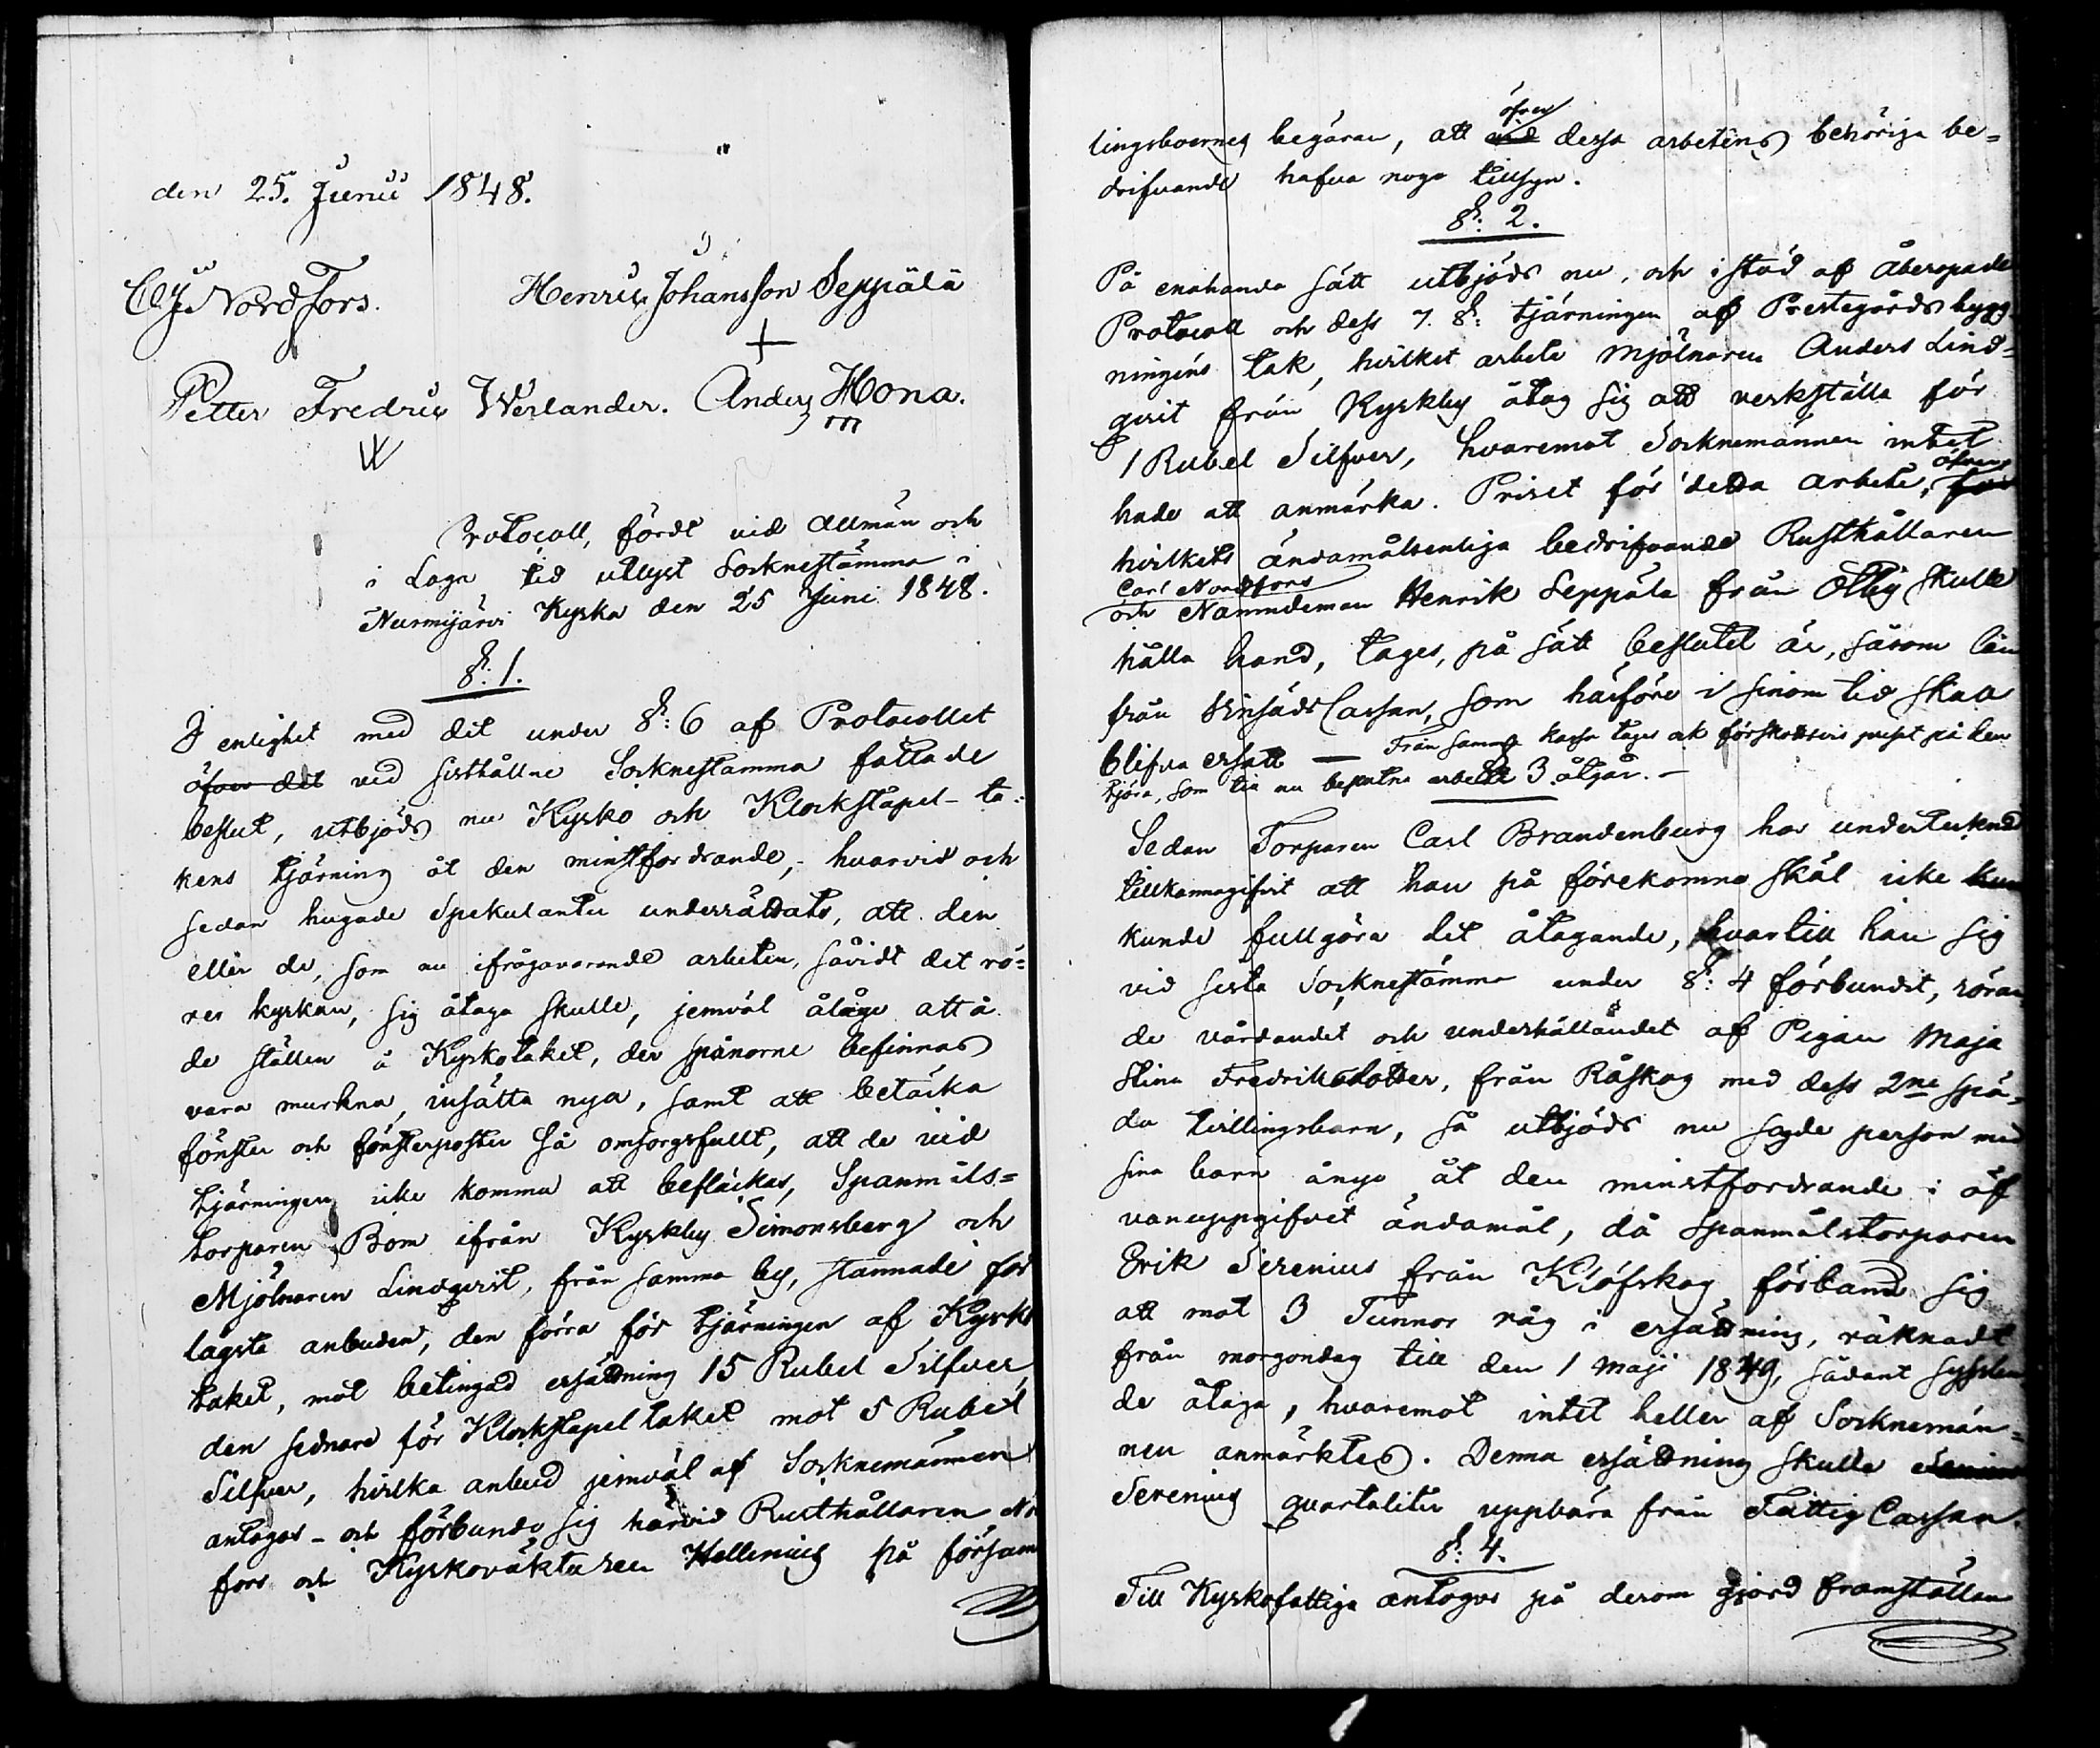 den 25. Junii 1848.
Clj Nordfors. Henric Johansson Seppälä
Petter Fredric Werlander. Anders Hona.
Protocoll, fördt vid allmän och
i Laga tid utlyst Socknestämma i
Nurmijärvi Kyrka den 25 Juni 1848.
§: 1.
I enlighet med det under §: 6 af Protocollet
öfver det vid sisthållne Socknestämma fattade
beslut, utbjöds nu Kyrko och Klockstapel-ta-
kens tjärning åt den minstfordrande, - hvarvid och
sedan hugade Spekulanter underrättats, att den
eller de, som nu ifrågavarande arbeten, såvidt det rö-
rer kyrkan, sig åtaga skulle, jemväl ålåge att å
de ställen å Kyrkotaket, der spånorne befinnas
vara murkna, insätta nya, samt att betäcka
fönster och fönsterposter så omsorgsfullt, att de vid
tjärningen icke komma att befläckas, Spanmåls-
torparen Bom ifrån Kyrkby Simonsberg och
Mjölnaren Lindqvist, från samma by, stannade för
lägsta anbuden, den förra för tjärningen af Kyrko
taket, mot betingad ersättning 15 Rubel Silfver,
den sednare för Klockstapeltaket mot 5 Rubel
Silfver, hvilka anbud jemväl af Socknemännen
antogos - och förbundo sig härvid Rusthållaren No
fors och Kyrkoväktaren Hellenius på försam
lingsboernes begäran, att vid öfver dessa arbetens behöriga be-
drifvande hafva noga tillsyn.
§: 2.
På enahanda sätt utbjöds nu, och i stöd af åberopade
Protocoll och dess 7. §: tjärningen af Prestegårds bygg-
ningens tak, hvilket arbete Mjölnaren Anders Lind-
qvist från Kyrkby åtog sig att verkställa för
1 Rubel Silfver, hvaremot Socknemännen intet
hade att anmärka. Priset för detta arbete, för öfver
hvilkets ändamålsenliga bedrifvande Rusthållaren
Carl Nordfors
och Nämndeman Henrik Seppälä från Ollby skulle
hålla hand, tages, på sätt beslutet är, såsom lån
från Spinsäds Cassan, som härföre i sinom tid skall
blifva ersatt — Från samma kassa tages ock förskottsvis priset på den
tjära, som till nu beslutne arbete åtgår. —
§ 3.
Sedan Torparen Carl Brandenburg har undertecknad
tillkännagifvit att han på förekomne skäl icke kun
kunde fullgöra det åtagande, hvartill han sig
vid sista Socknestämma under §: 4 förbundit, röran
de vårdandet och underhållandet af Pigan Maja
Stina Fredriksdotter, från Råskog med dess 2ne spä-
da tvillingsbarn, så utbjöds nu sagde person med
sina barn ånyo åt den minstfordrande i öf
vanuppgifvet ändamål, då Spanmålstorparen
Erik Sirenius från Klöfskog förband sig
att mot 3 Tunnor råg i ersättning, räknadt
från morgondag till den 1 Maji 1849, sådant
de åtaga, hvaremot intet heller af Socknemän-
nen anmärktes. Denna ersättning skulle
Serenius qvartaliter uppbära från Fattig Cassan.
§: 4.
Till Kyrkofattiga antogos på derom gjord framställan